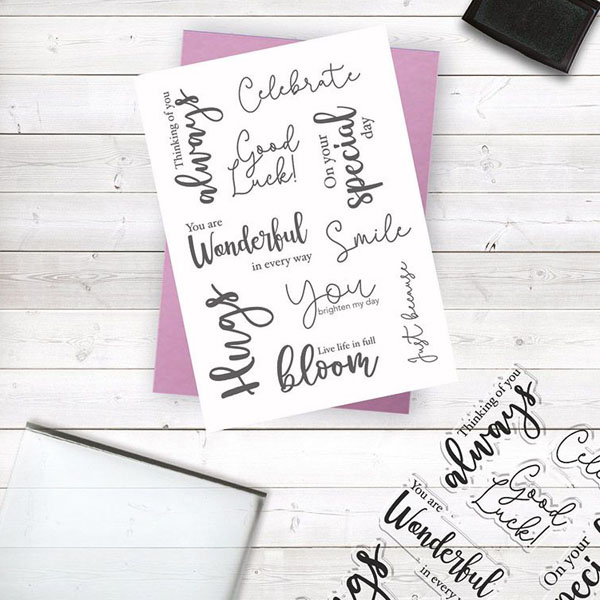 Celebrate
Thinking of you
always
Good
Luck!
On your
special
day
You are
Wonderful
in every way
Smile
You
brighten my day
Just because
Hugs
Live life in full
bloom
Thinking of you
always
Good
Luck!
You are
Wonderful
in every
On your